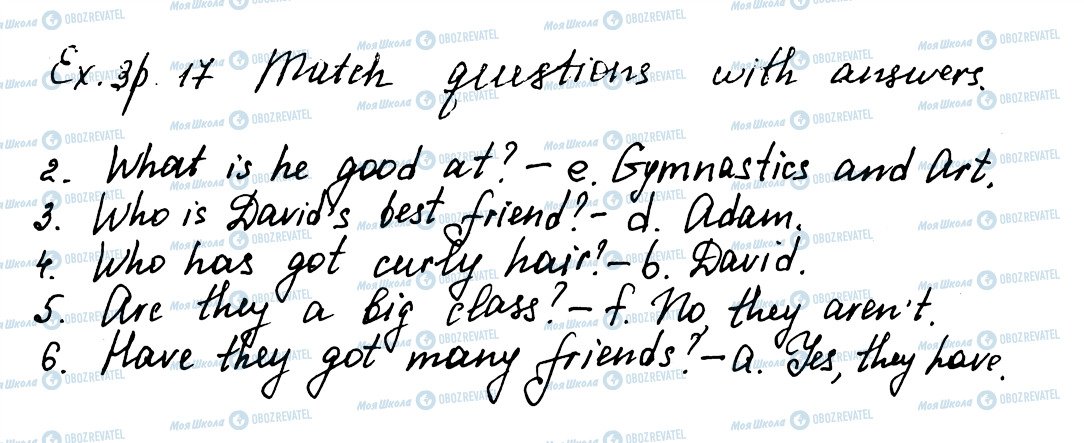 Ex. 3p. 17 Match questions with answers.
2. What is he good at? – e. Gymnastics and Art.
3. Who is David's best friend? – d. Adam.
4. Who has got curly hair? – b. David.
5. Are they a big class? – f. No, they aren't.
6. Have they got many friends? – a. Yes, they have.